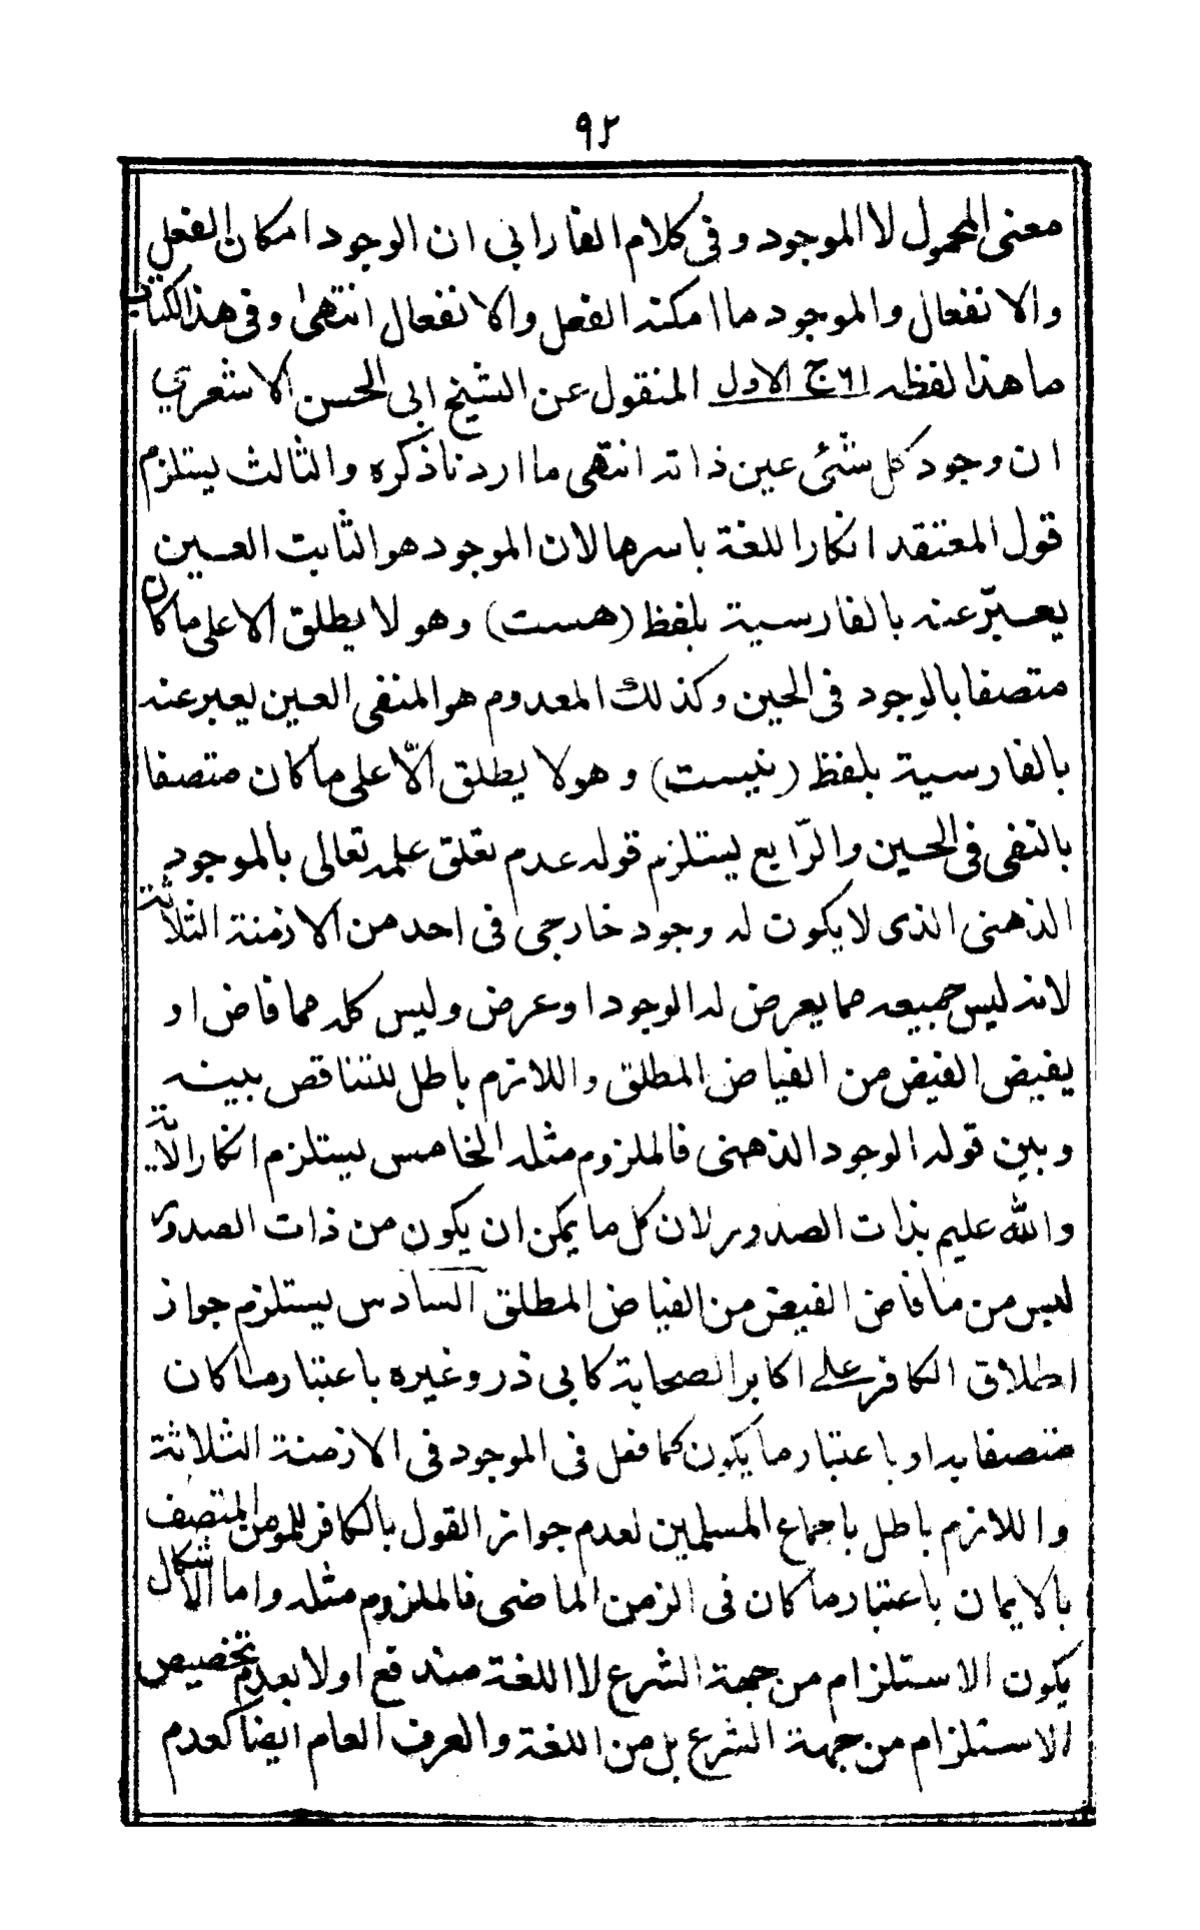 ٩٢
معنى المحمول لا الموجود وفى كلام الفارابى ان الوجود امكان الفعل
والانفعال والموجود ما امكنه الفعل والانفعال انتهىٰ وفى هذا الكتاب
ما هذا لفظه ج الاول المنقول عن الشيخ ابى الحسن الاشعري
ان وجود كل شئى عين ذاته انتهى ما اردنا ذكره والثالث يستلزم
قول المعتقد انكار اللغة باسرها لان الموجود هو الثابت العين
يعبّر عنه بالفارسية بلفظ (هست) وهو لا يطلق الا على ما كان
متصفا بالوجود فى الحين وكذلك المعدوم هو المنفى العين يعبر عنه
بالفارسية بلفظ (نيست) وهو لا يطلق الّا على ما كان متصفا
بالنفى فى الحين والرّابع يستلزم قوله عدم تعلق علمه تعالى بالموجود
الذهنى الذى لا يكون له وجود خارجى فى احد من الازمنة الثلاثة
لانه ليس جميعه مما يعرض له الوجود او عرض وليس كله مما فاض او
يفيض الفيض من الفياض المطلق واللازم باطل للتناقص بينه
وبين قوله الوجود الذهنى فالملزوم مثله الخامس يستلزم انكار الآية
والله عليم بذات الصدور لان كل ما يمكن ان يكون من ذات الصدور
ليس من ما فاض الفيض من الفياض المطلق السادس يستلزم جواز
اطلاق الكافر على اكابر الصحابة كابى ذر وغيره باعتبار ما كان
متصفا به او باعتبار ما يكون كما فعل فى الموجود فى الازمنة الثلاثة
واللازم باطل باجماع المسلمين لعدم جواز القول بالكافر للمومن المتصف
بالايمان باعتبار ما كان فى الزمن الماضى فالملزوم مثله واما الاشكال
يكون الاستلزام من جهة الشرع لا اللغة مندفع اولا بعدم تخصيص
الاستلزام من جهة الشرع بل من اللغة والعرف العام ايضا كعدم